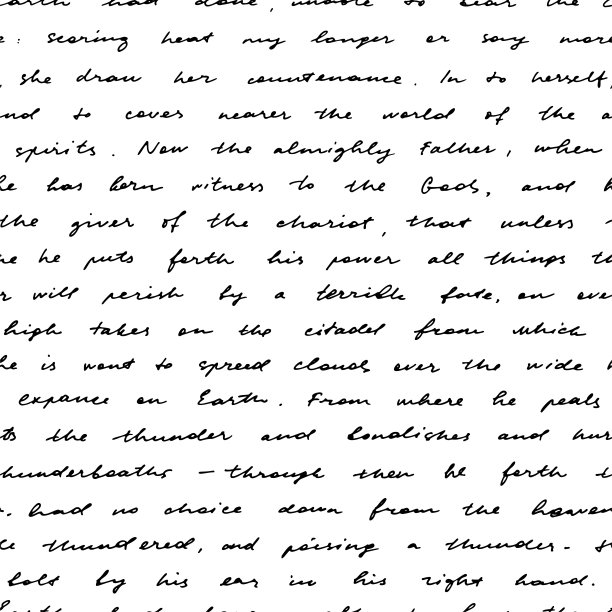 had done, unable to bear the
: scoring heat my longer or say more
, she draw her countenance. In to herself,
to coves nearer the world of the
spirits. Now the almighly Father, when
he has born witness to the Gods, and
the giver of the chariot, that unless
he puts forth his power all things
will perish by a terrible fate, on
high takes on the citadel from which
he is wont to spreed clouds over the wide
expance on Earth. From where he peals
the thunder and and
thunderboaths – through then he forth
. had no choice down from the
thundered, and poising a thunder-
bolt by his ear in his right hand.